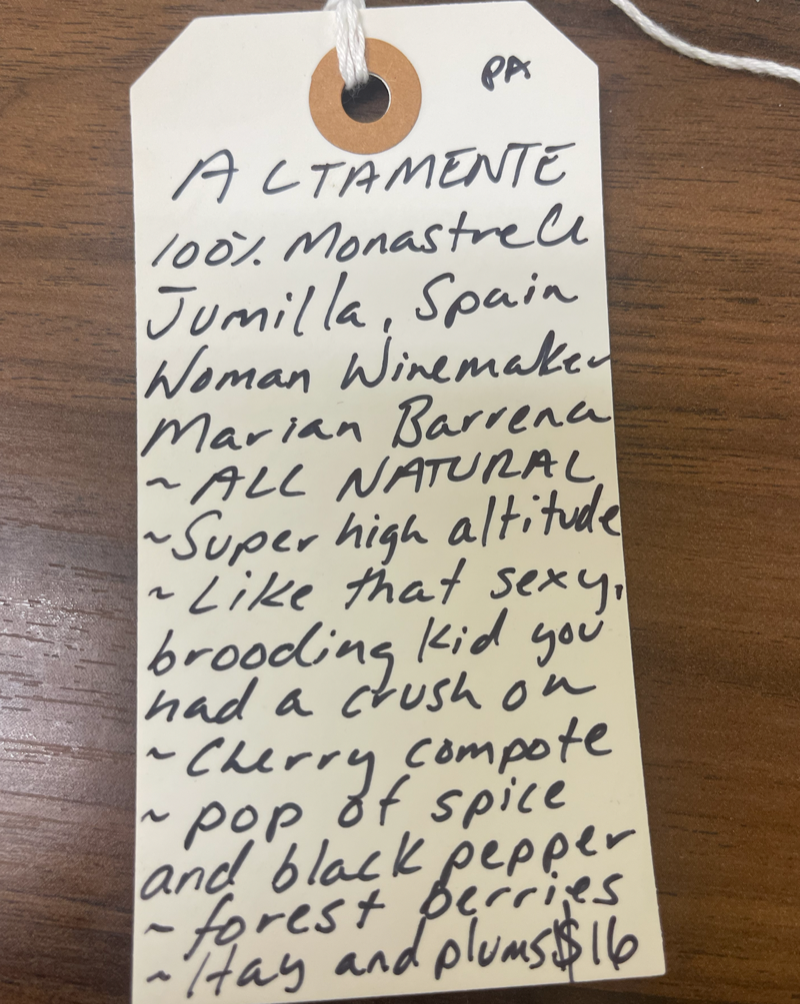 PA
ALTAMENTE
100% Monastrell
Jumilla, Spain
Woman Winemaker
Marian Barrena
~ ALL NATURAL
~ Super high altitude
~ Like that sexy,
brooding kid you
had a crush on
~ Cherry compote
~ pop of spice
and black pepper
~ forest berries
~ Hay and plums $16